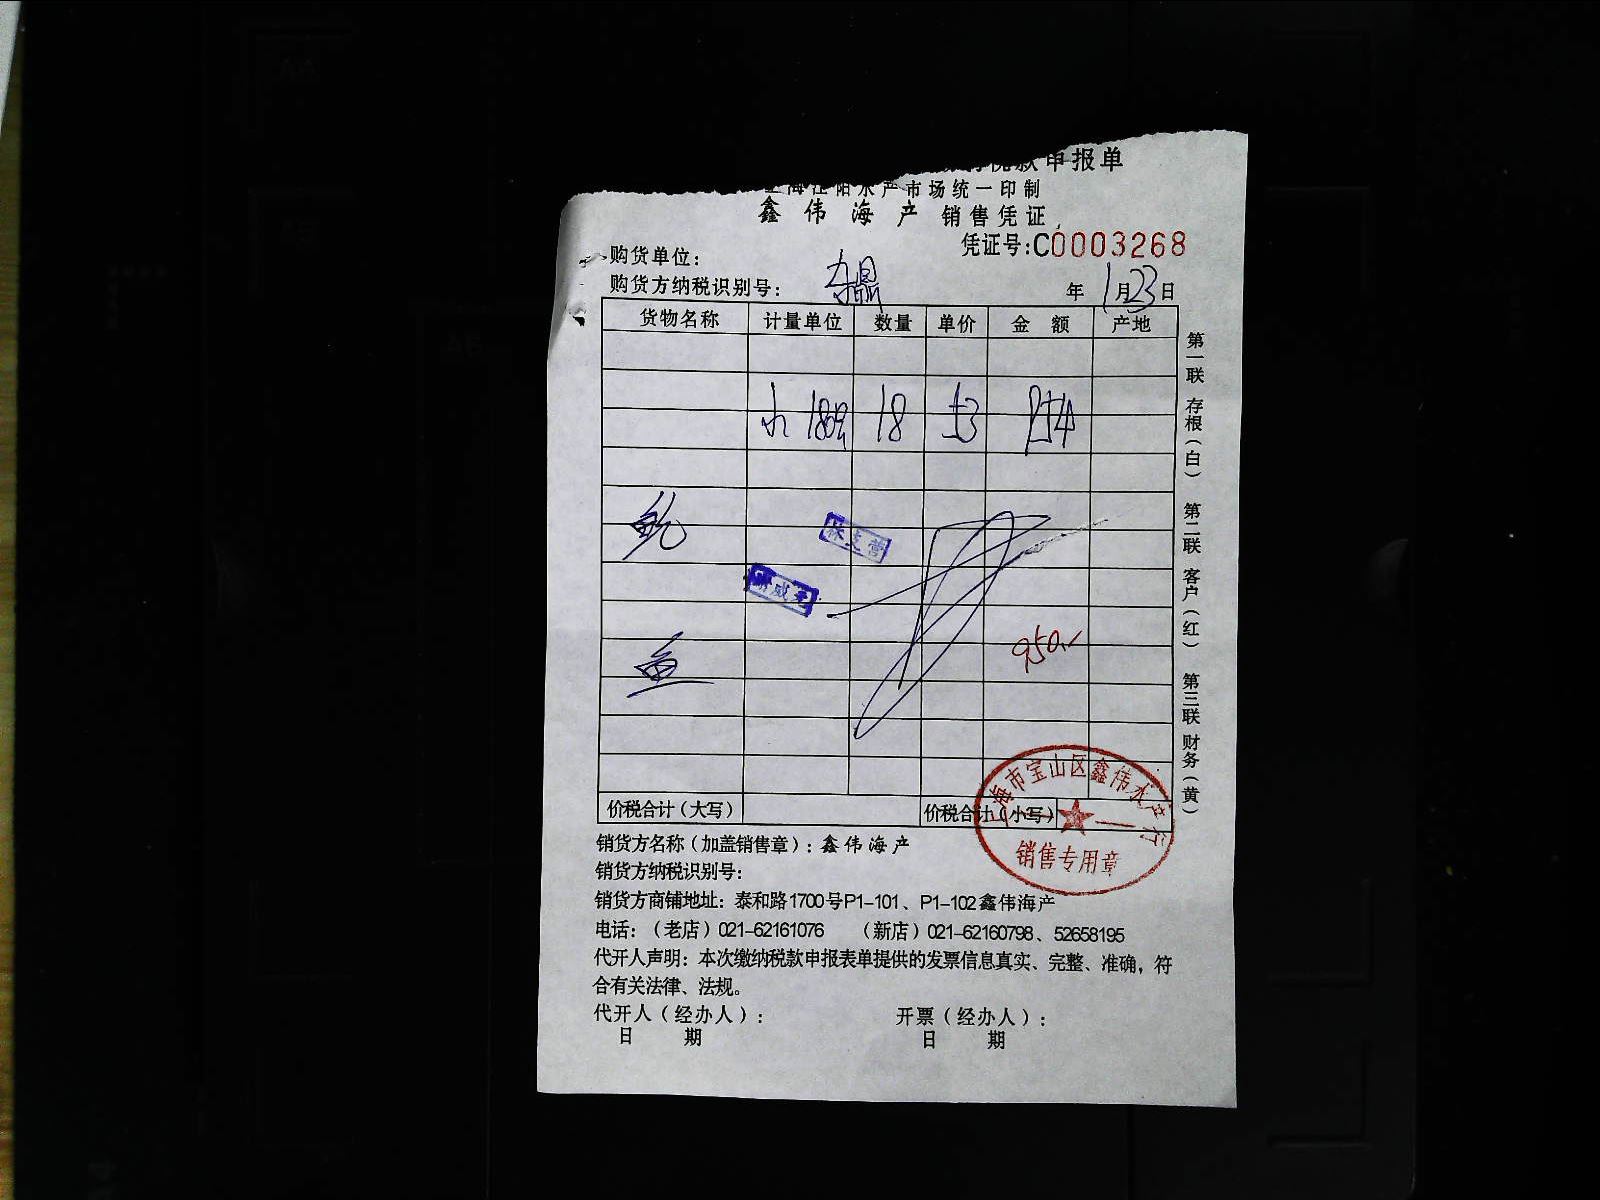 税款申报单
上海江阳水产市场统一印制
鑫伟海产 销售凭证
凭证号:C0003268
购货单位:
购货方纳税识别号: 年 1月23日
货物名称 计量单位 数量 单价 金额 产地
18 53 954
鱿
950.-
鱼
价税合计(大写) 价税合计(小写)
上海市宝山区鑫伟水产行
销售专用章
销货方名称(加盖销售章):鑫伟海产
销货方纳税识别号:
销货方商铺地址:泰和路1700号P1-101、P1-102鑫伟海产
电话:(老店)021-62161076 (新店)021-62160798、52658195
代开人声明:本次缴纳税款申报表单提供的发票信息真实、完整、准确,符
合有关法律、法规。
代开人(经办人): 开票(经办人):
日 期 日 期
第一联 存根(白) 第二联 客户(红) 第三联 财务(黄)